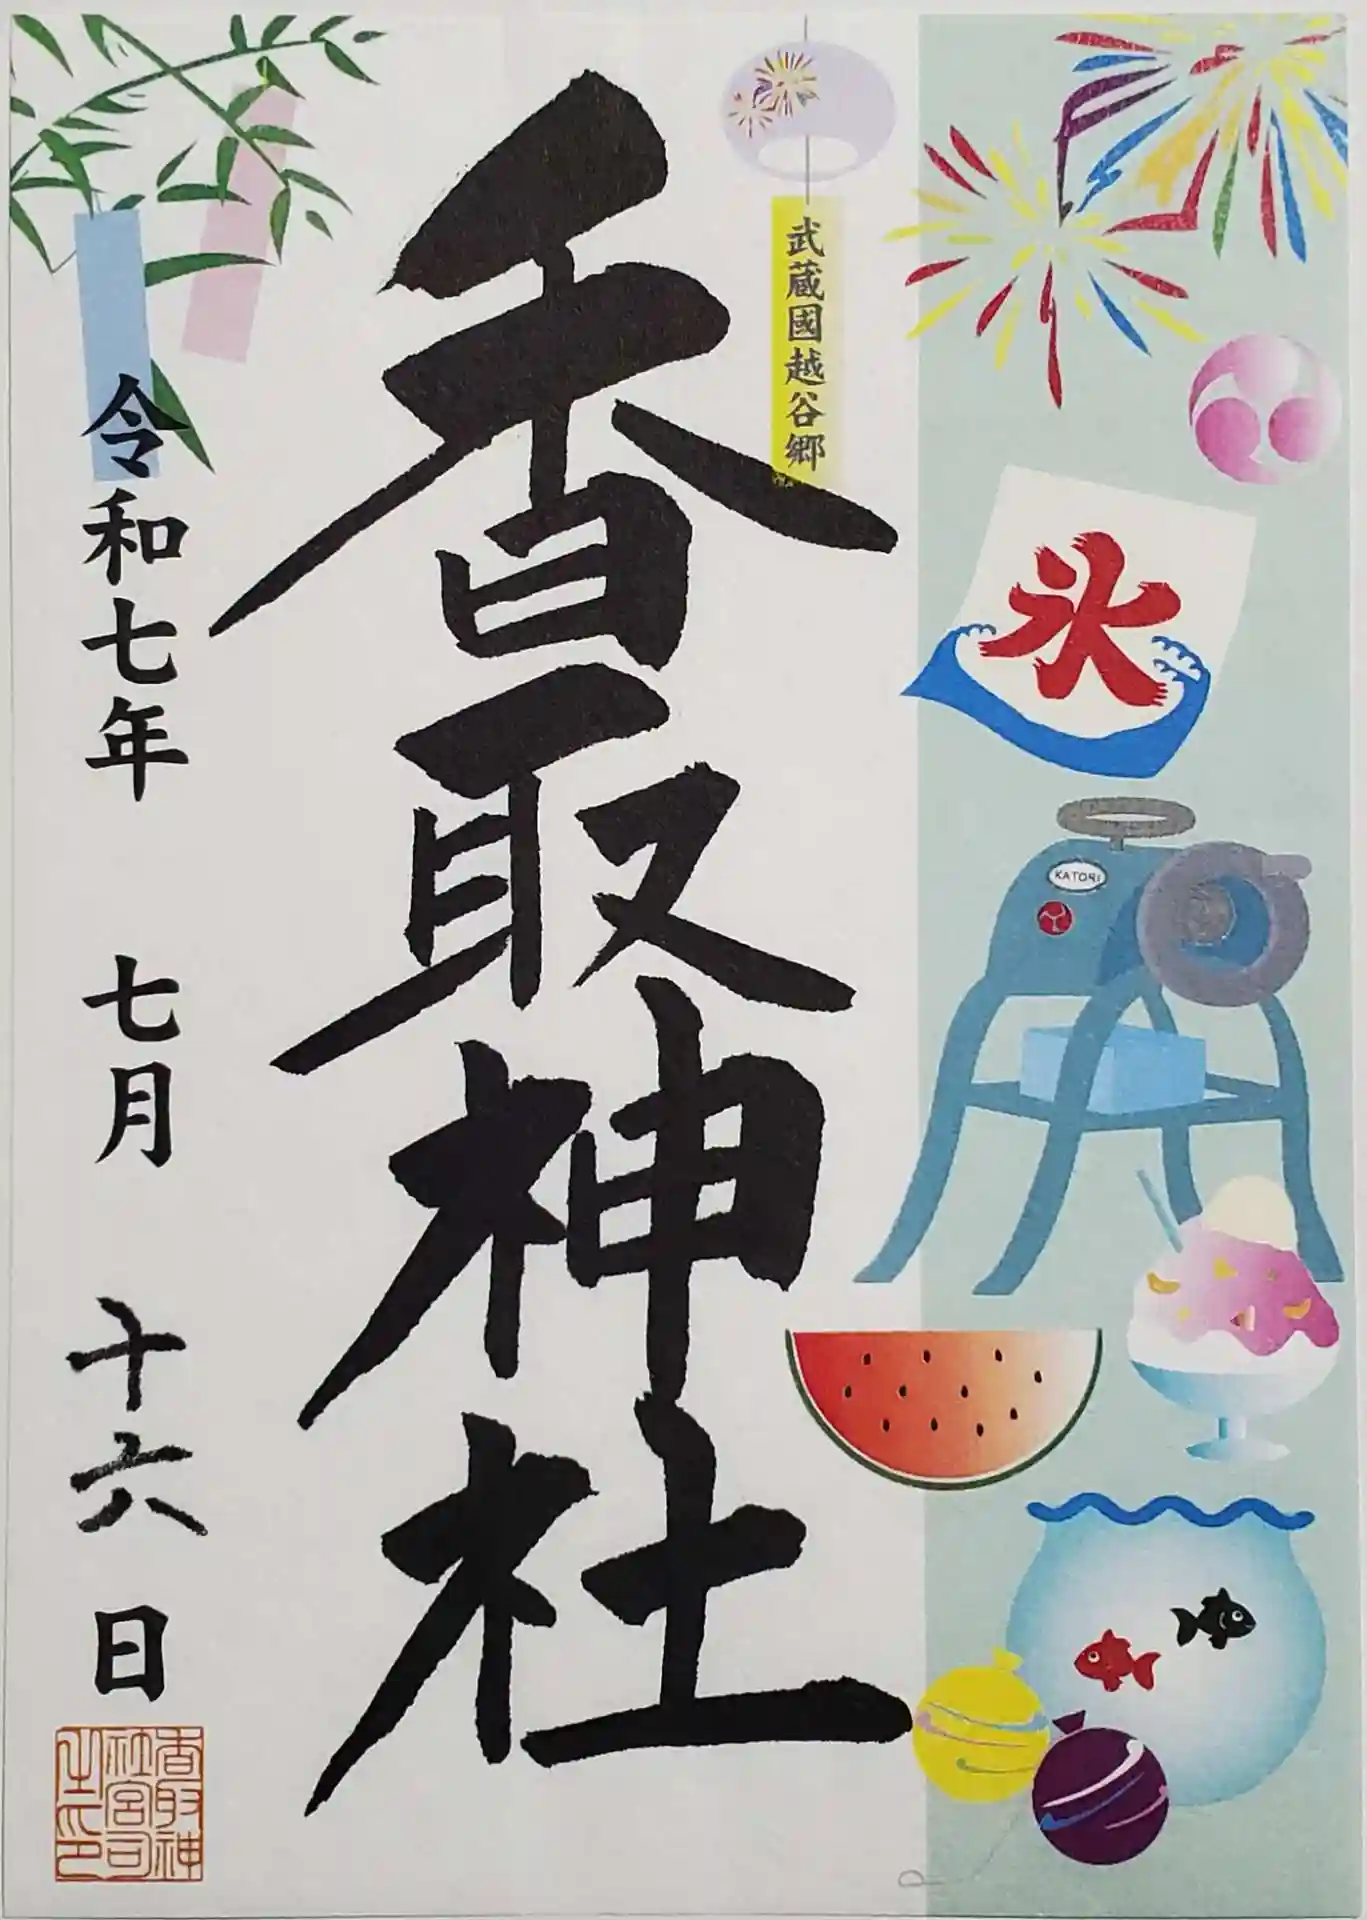 武蔵國越谷郷
氷
KATORI
香取神社
令和七年 七月 十六日
香取神
社宮司
之印